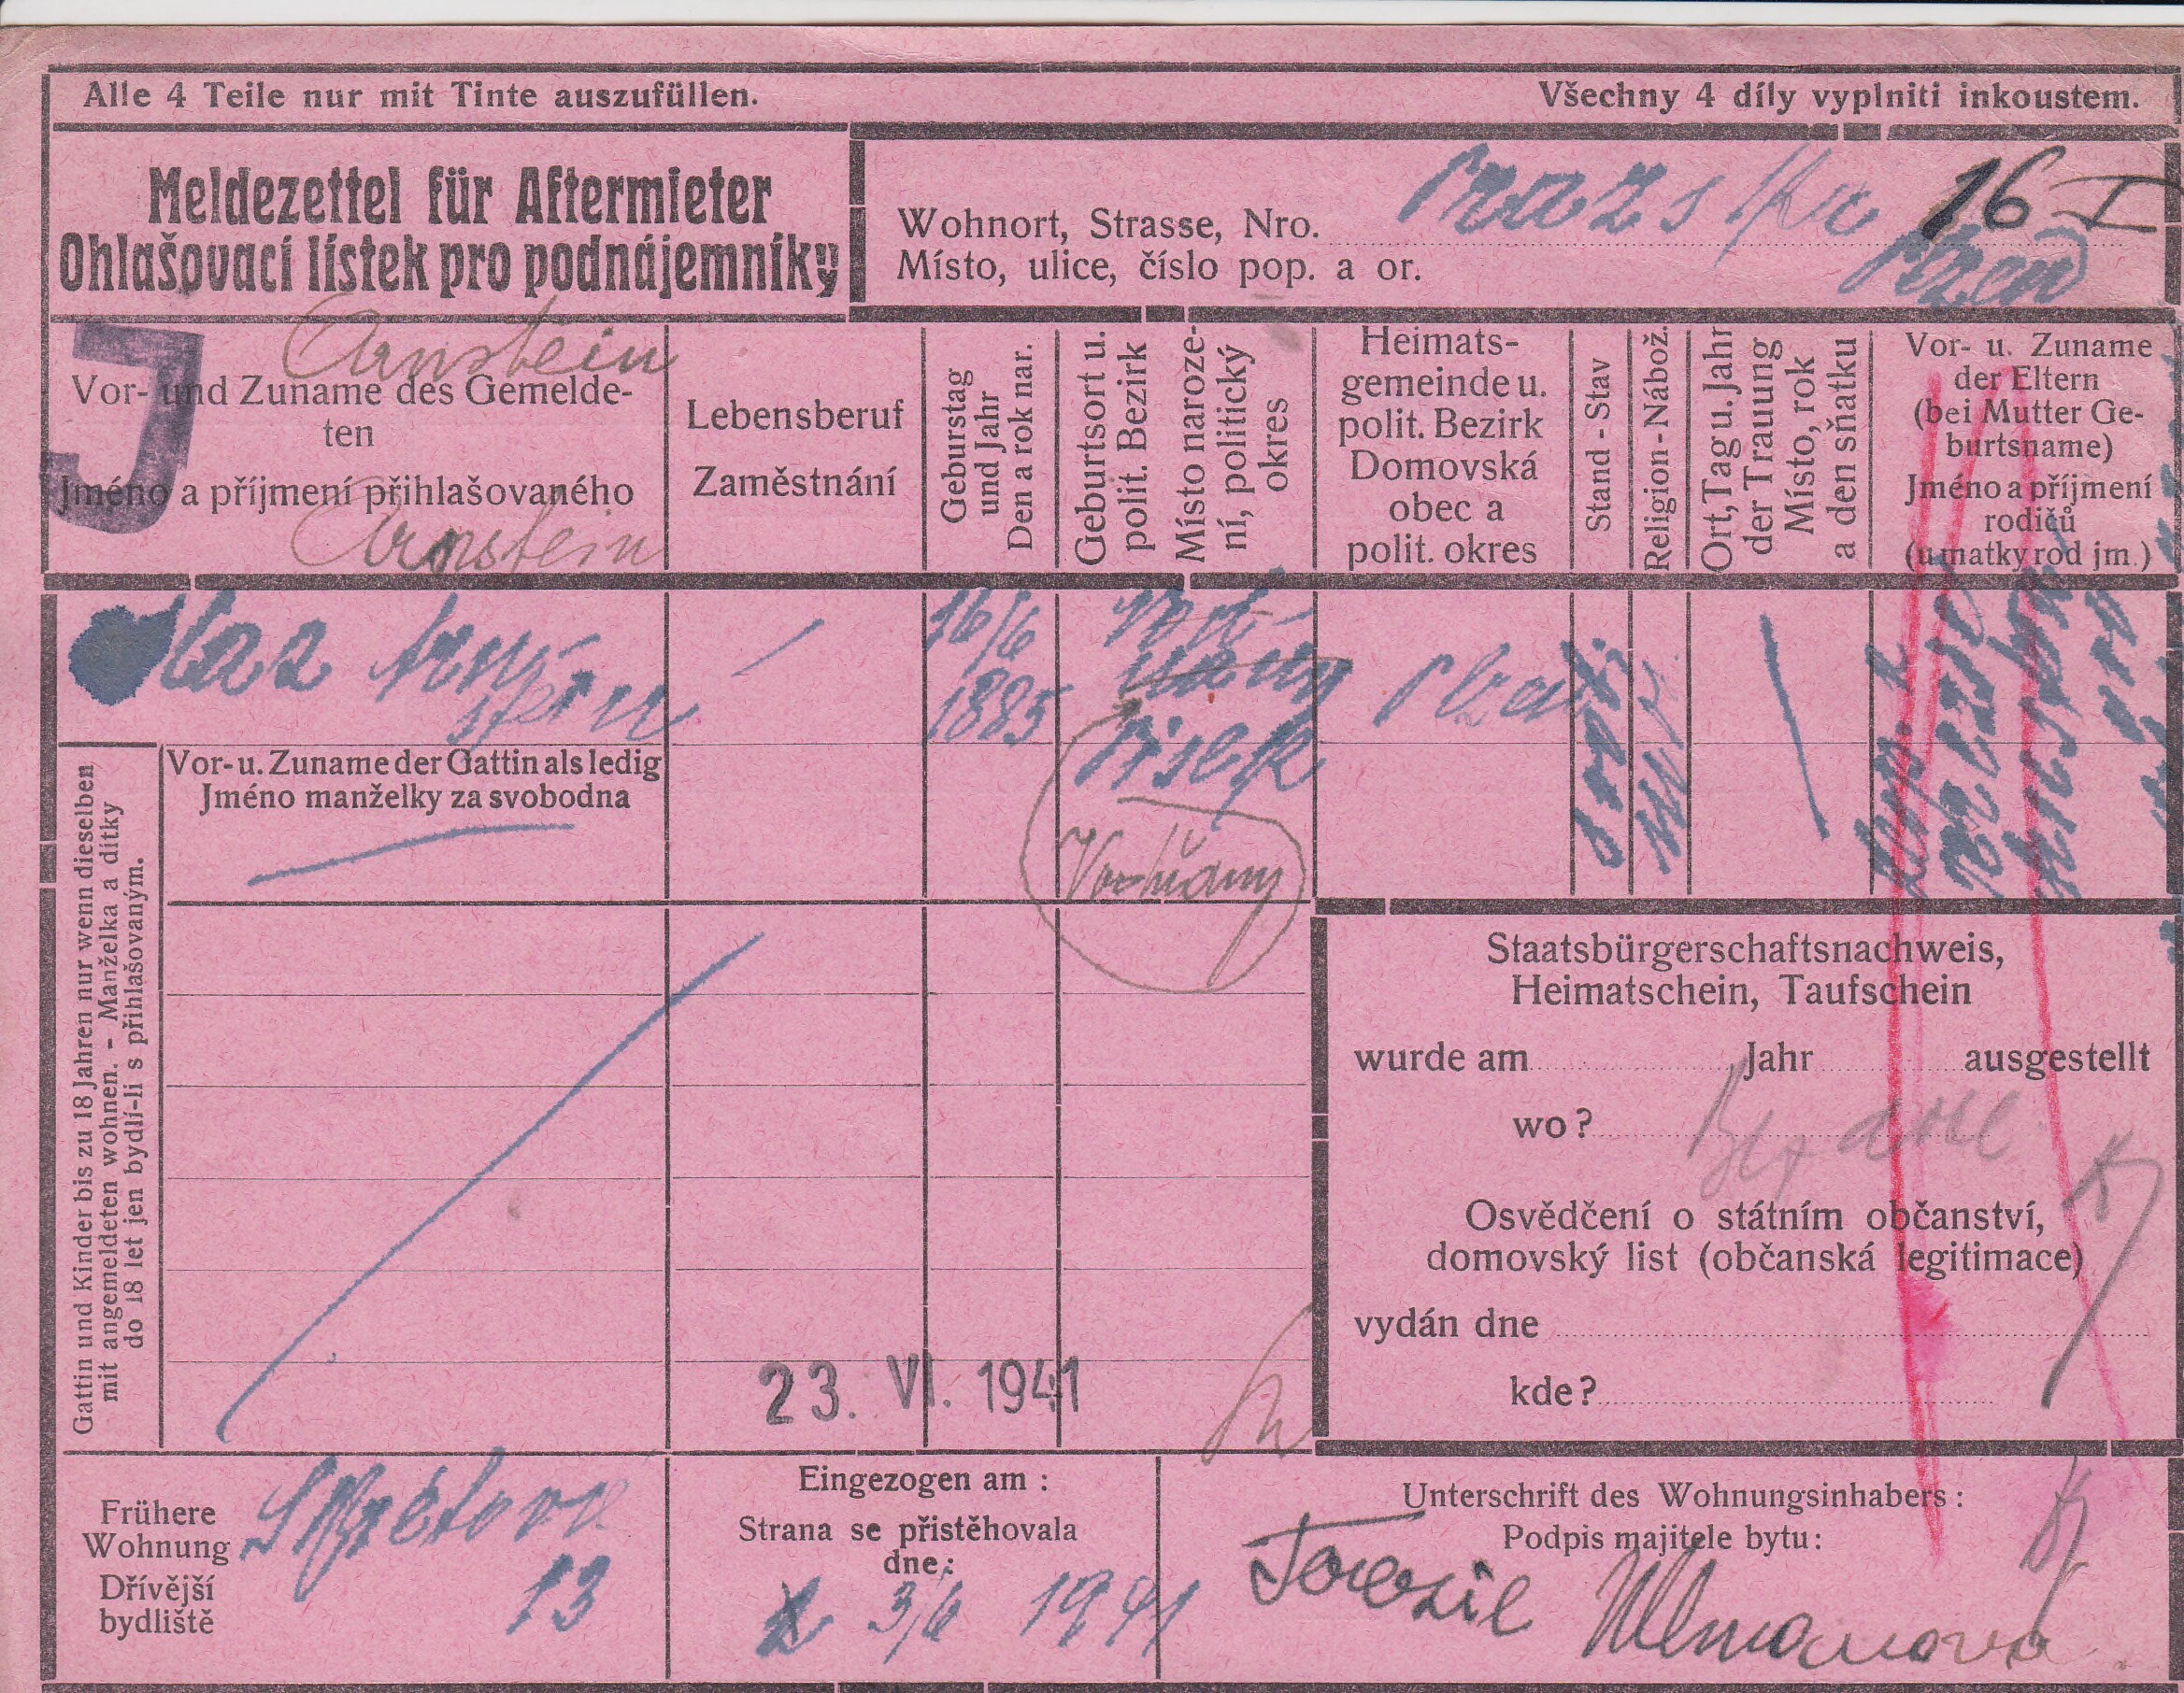 Alle 4 Teile nur mit Tinte auszufüllen.
Všechny 4 díly vyplniti inkoustem.
Meldezettel für Aftermieter
Ohlašovací lístek pro podnájemníky
Wohnort, Strasse, Nro.
Místo, ulice, číslo pop. a or.
16 I
J
Arnstein
Vor- und Zuname des Gemelde-
ten
Jméno a příjmení přihlašovaného
Arnstein
Lebensberuf
Zaměstnání
Geburstag
und Jahr
Den a rok nar.
Geburtsort u.
polit. Bezirk
Místo naroze-
ní, politický
okres
Heimats-
gemeinde u.
polit. Bezirk
Domovská
obec a
polit. okres
Stand - Stav
Religion - Nábož.
Ort, Tag u. Jahr
der Trauung
Místo, rok
a den sňatku
Vor- u. Zuname
der Eltern
(bei Mutter Ge-
burtsname)
Jméno a příjmení
rodičů
(u matky rod jm.)
16/6
1885
Písek
Gattin und Kinder bis zu 18 Jahren nur wenn dieselben
mit angemeldeten wohnen. - Manželka a dítky
do 18 let jen bydlí-li s přihlašovaným.
Vor- u. Zuname der Gattin als ledig
Jméno manželky za svobodna
Staatsbürgerschaftsnachweis,
Heimatschein, Taufschein
wurde am Jahr ausgestellt
wo?
Osvědčení o státním občanství,
domovský list (občanská legitimace)
vydán dne
kde?
23. VI. 1941
Frühere
Wohnung
Dřívější
bydliště
13
Eingezogen am :
Strana se přistěhovala
dne:
3/6 1941
Unterschrift des Wohnungsinhabers :
Podpis majitele bytu: